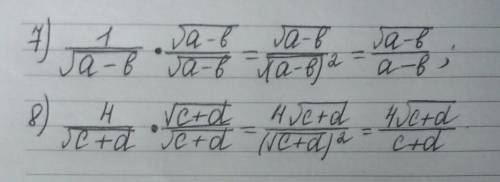 7) 1/√(a-в) • √(a-в)/√(a-в) = √(a-в)/(√(a-в))² = √(a-в)/(a-в) ;
8) 4/√(c+d) • √(c+d)/√(c+d) = 4√(c+d)/(√(c+d))² = 4√(c+d)/(c+d)